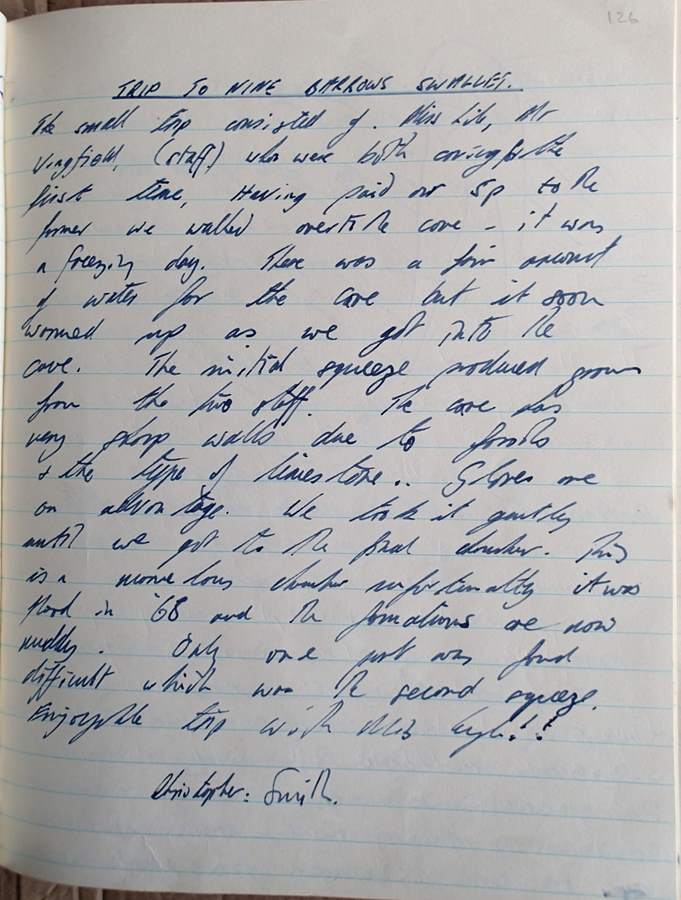 126
TRIP TO NINE BARROWS SWALLET.
The small trip consisted of. Miss Lile, Mr
Vingfield, (staff) who were both caving for the
first time, Having paid our 5p to the
farmer we walked over to the cave - it was
a freezing day. There was a fair amount
of water for the cave but it soon
warmed up as we got into the
cave. The initial squeeze produced groans
from the two staff. The cave has
very sharp walls due to fossils
& the type of limestone.. Gloves are
an advantage. We took it gently
until we got to the final chamber. This
is a marvelous chamber unfortunatly it was
flood in '68 and the fomations are now
muddy. Only one part was found
difficult which was the second squeeze.
Enjoyable trip with
Christopher: Smith.